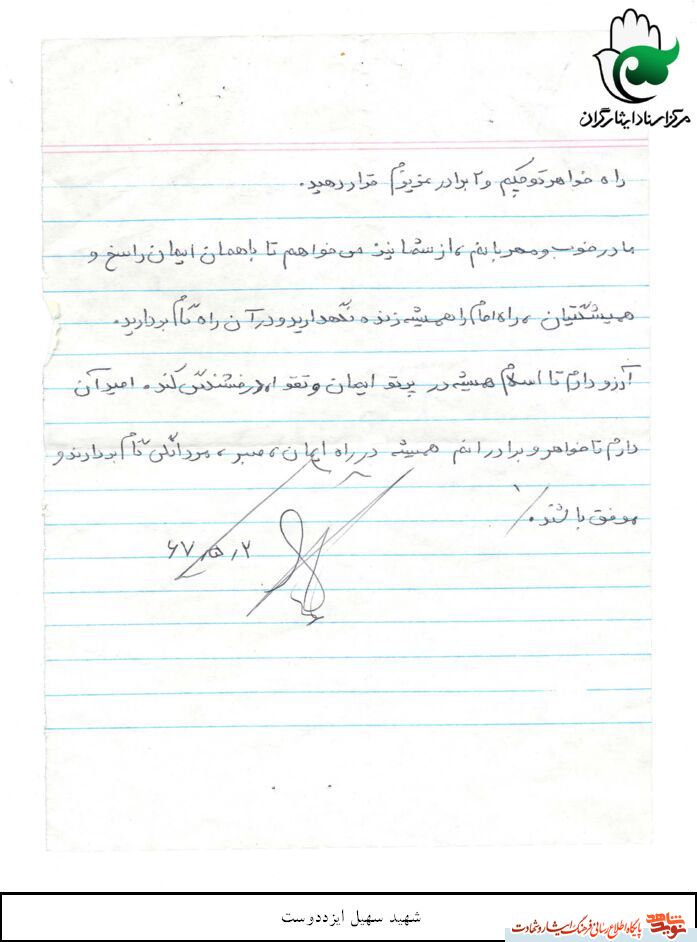 مرکز اسناد ایثارگران
راه خواهر کوچکم و ۲ برادر عزیزم قرار دهید.
مادر خوب و مهربانم، از شما نیز می‌خواهم تا با همان ایمان راسخ و
همیشگیتان، راه امام را همیشه زنده نگهدارید و در آن راه گام بردارید.
آرزو دارم تا اسلام همیشه در پرتو ایمان و تقوا بدرخشندگی کند. امید آن
دارم تا خواهر و برادرانم همیشه در راه ایمان، صبر، مردانگی گام بردارند و
موفق باشند.
۲ر۵ر۶۷
شهید سهیل ایزددوست
نوید شاهد
پایگاه اطلاع رسانی فرهنگ ایثار و شهادت